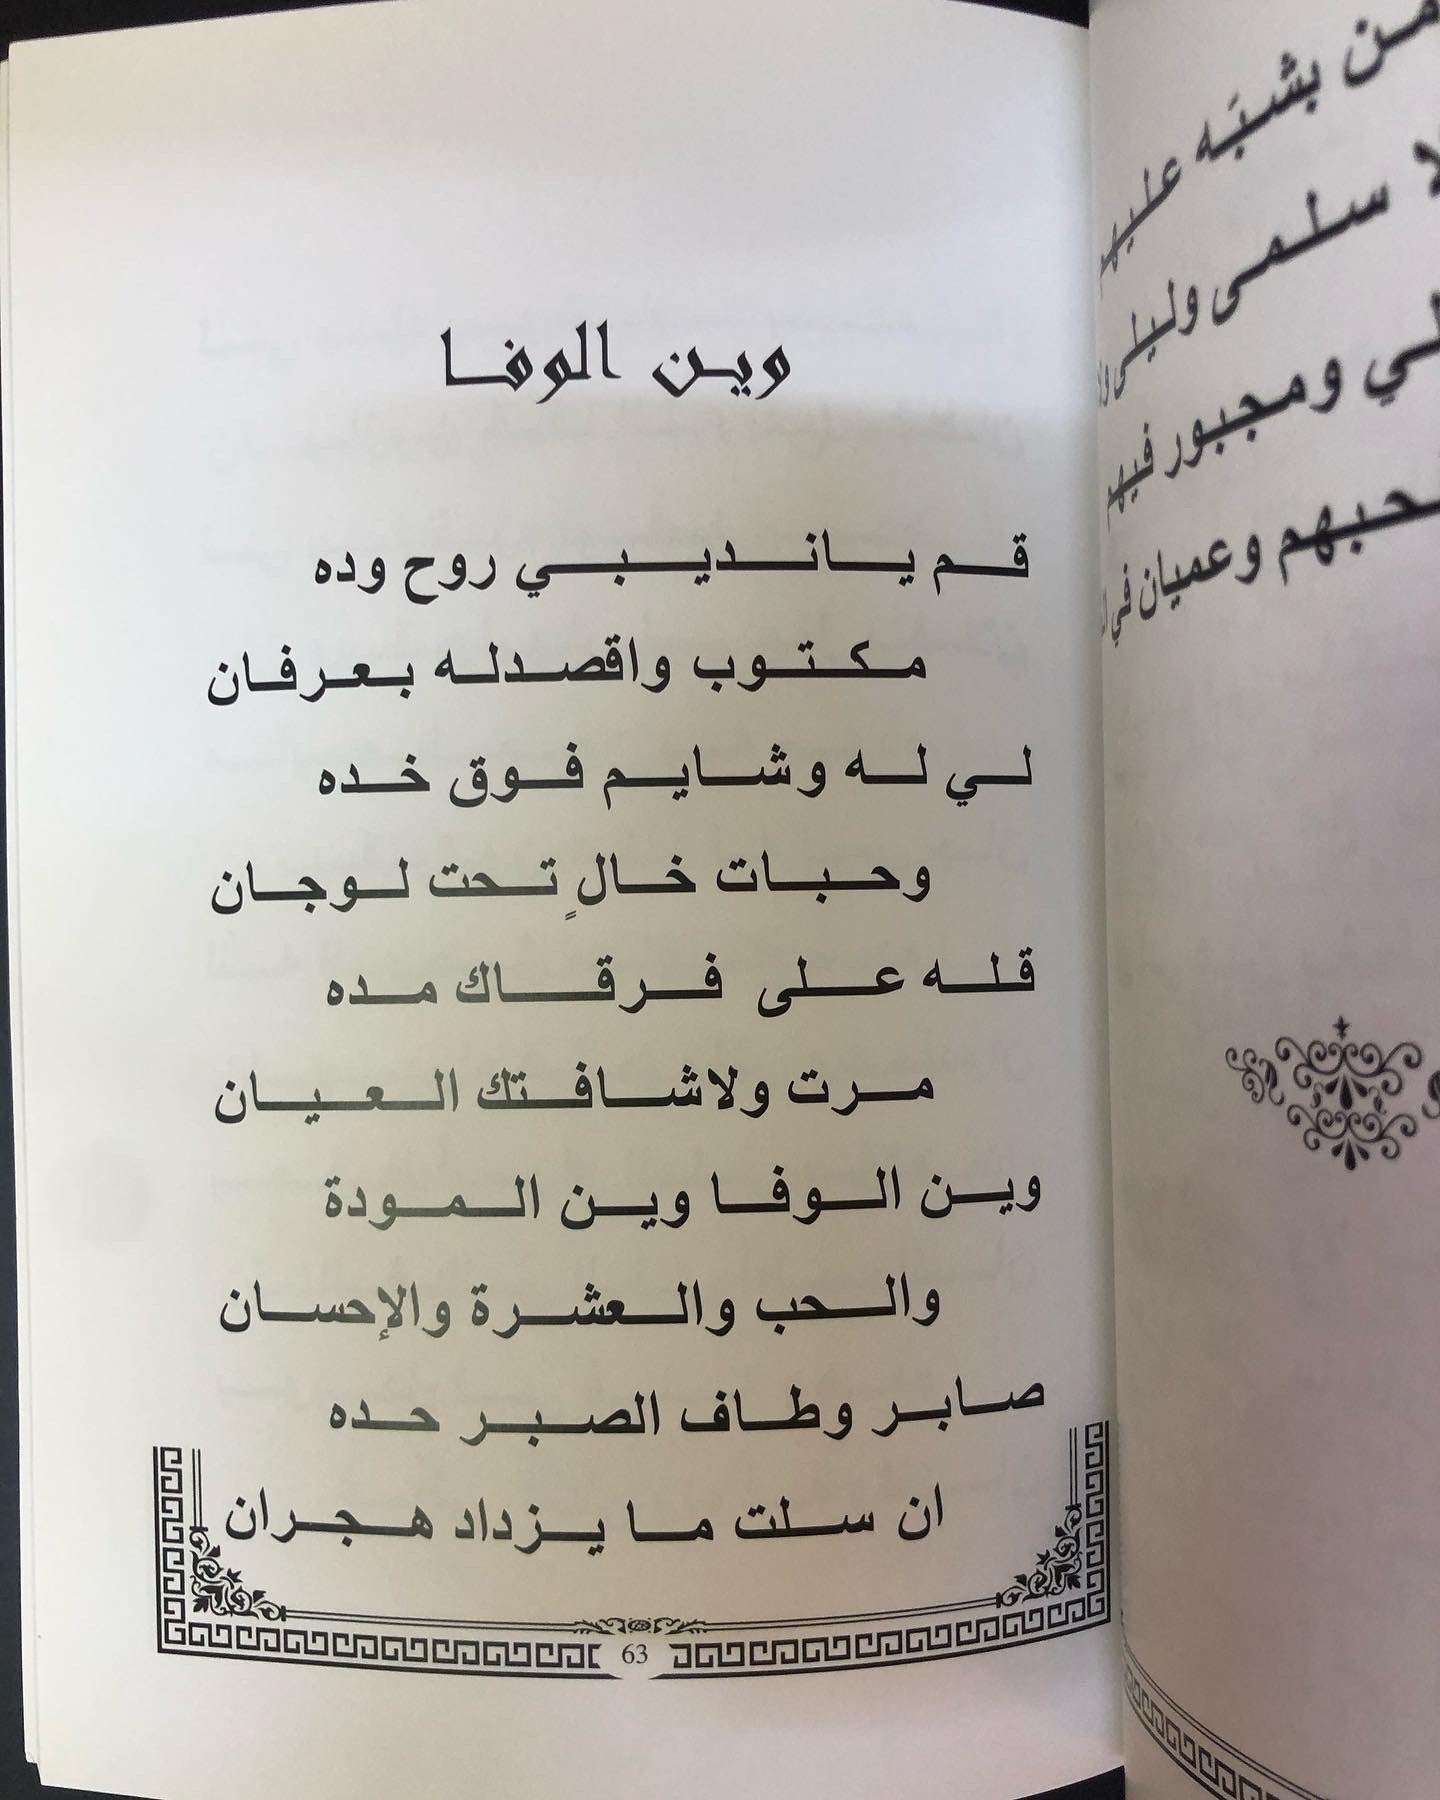 وين الوفا
قم يانديبي روح وده
مكتوب واقصدله بعرفان
لي له وشايم فوق خده
وحبات خالٍ تحت لوجان
قله على فرقاك مده
مرت ولاشافتك العيان
وين الوفا وين المودة
والحب والعشرة والإحسان
صابر وطاف الصبر حده
ان سلت ما يزداد هجران
63
من بشبَه عليهم
سلمى وليلى
ومجبور فيهم
وعميان في